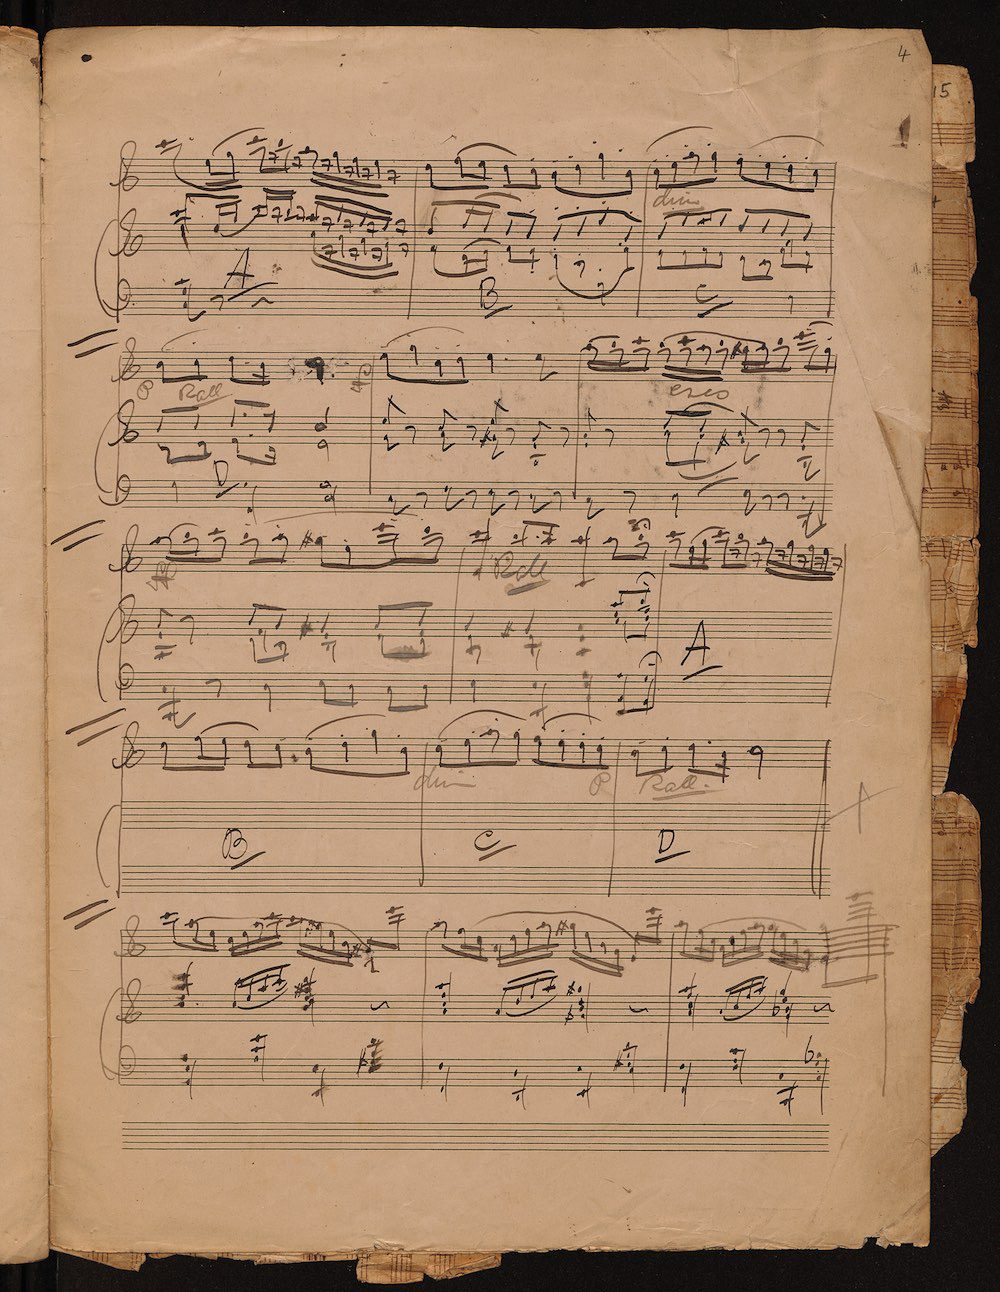 4
15
dim
A B C
P Rall
cresc
D
Rall
A
dim P Rall.
B C D
A